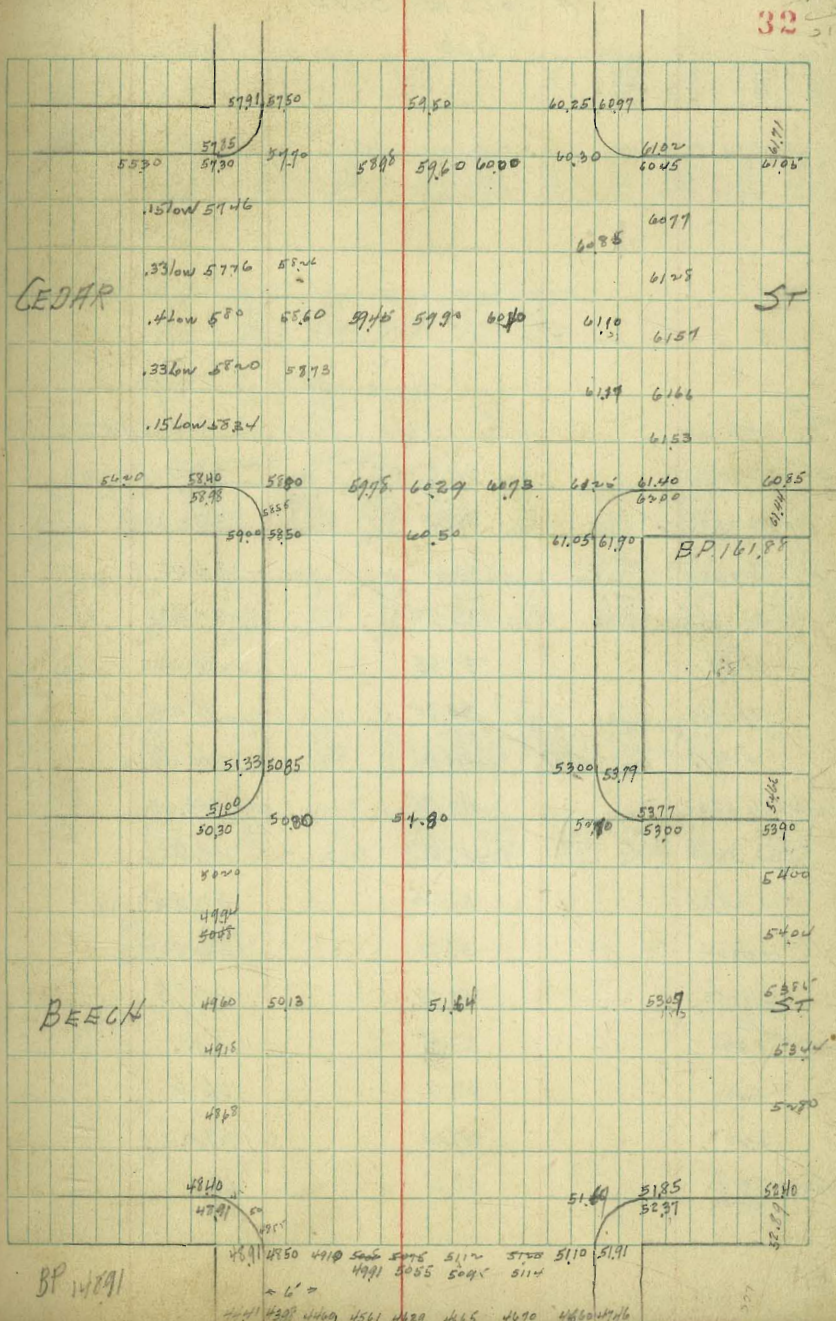 32
57.91 57.50 59.50 60.25 60.97
57.85 61.02 61.71
55.30 57.30 57.70 58.98 59.60 60.00 60.30 60.45 61.05
.15 low 57.46 60.77
60.85
.33 low 57.76 58.26 61.28
CEDAR ST
.4 Low 58.0 58.60 59.45 59.90 61.10
61.57
.33 Low 58.20 58.73
61.66
.15 Low 58.34 61.53
56.20 58.40 59.78 60.29 60.73 61.40 60.85
58.98 58.55 62.00 61.44
59.00 58.50 60.50 61.05 61.90
BP. 161.88
51.33 50.85 53.00 53.79
51.00 53.77
50.30 50.80 51.80 53.00 53.90
50.20 54.00
49.94
54.04
BEECH ST
49.60 50.13 51.64 53.85
49.18 53.42
48.68 52.80
48.40 51.69 51.85 52.40
48.91 52.37 52.89
48.55
48.91 48.50 49.10 51.12 51.10 51.91
49.91 50.55 50.95 51.14
BP 148.91
6'
44.60 45.61 46.65 46.70